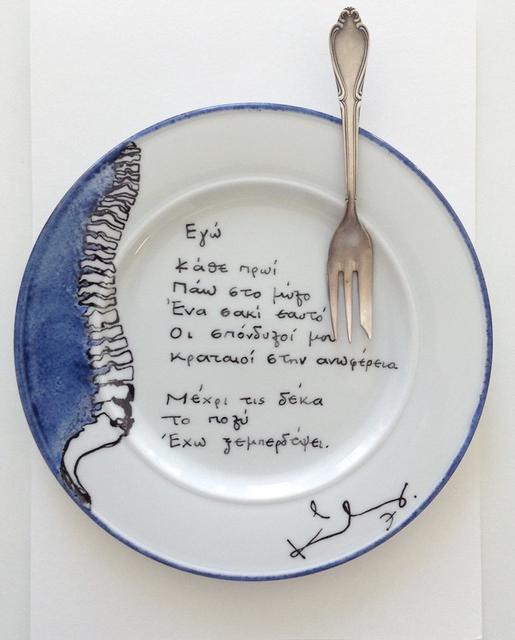 Εγώ
Κάθε πρωί
Πάω στο μύλο
Ένα σακί εαυτό
Οι σπόνδυλοί μου
Κραταιοί στην ανωφέρεια
Μέχρι τις δέκα
το πολύ
Έχω ξεμπερδέψει.